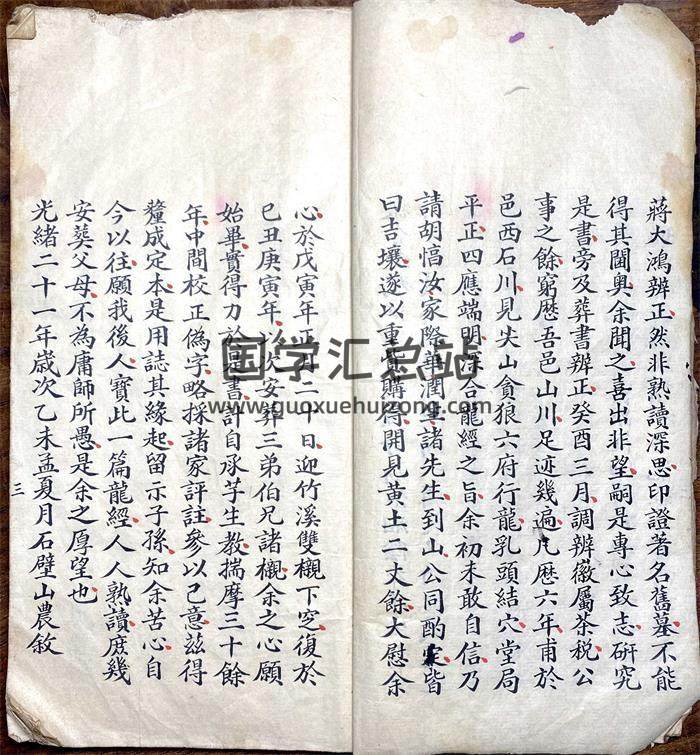 蔣大鴻辨正然非熟讀深思印證著名舊墓不能
得其閫奧余聞之喜出非望嗣是專心致志研究
是書旁及葬書辨正癸酉三月調辦徽屬茶稅公
事之餘窮歷吾邑山川足迹幾遍凡歷六年甫於
邑西石川見尖山貪狼六府行龍乳頭結穴堂局
平正四應端明深合龍經之旨余初未敢自信乃
請胡愊汝家際諸先生到山公同酌定皆
曰吉壤遂以重購得開見黃土二丈餘大慰余
心於戊寅年正月二十日迎竹溪雙櫬下窆復於
己丑庚寅年以次安葬三弟伯兄諸櫬余之心願
始畢實得力於是書計自承芋生教揣摩三十餘
年中間校正偽字略採諸家評註參以己意茲得
釐成定本是用誌其緣起留示子孫知余苦心自
今以往願我後人寶此一篇龍經人人熟讀庶幾
安葬父母不為庸師所愚是余之厚望也
光緒二十一年歲次乙未孟夏月石壁山農敘
三
国学汇总站
www.guoxuehuizong.com